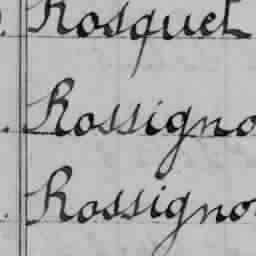 Rosquet
Rossigno
Rossigno